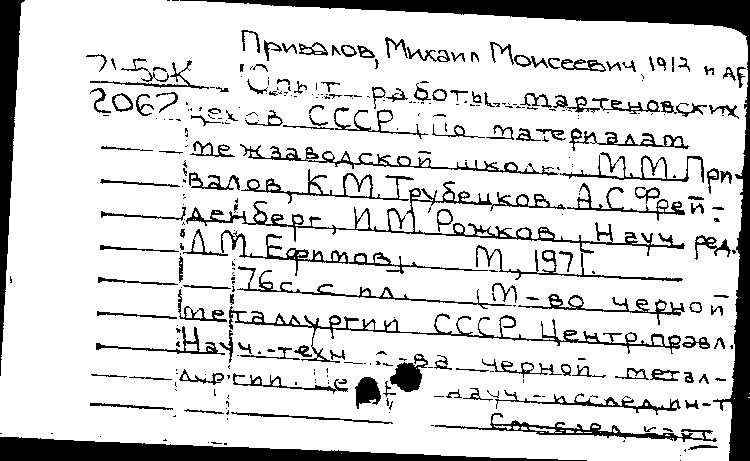 Привалов, Михаил Моисеевич, 1912 и др.
71-50К Опыт работы мартеновских
2067 цехов СССР. (По материалам
межзаводской школы). М.М. При-
валов, К.М. Трубецков, А.С. Фрей-
денберг, И.М. Рожков. (Науч. ред.
Л.М. Ефимов). М., 1971.
76 с. с ил. (М-во черной
металлургии СССР. Центр. правл.
Науч.-техн о-ва черной метал-
лургии. науч.-исслед. ин-т
См. след. карт.